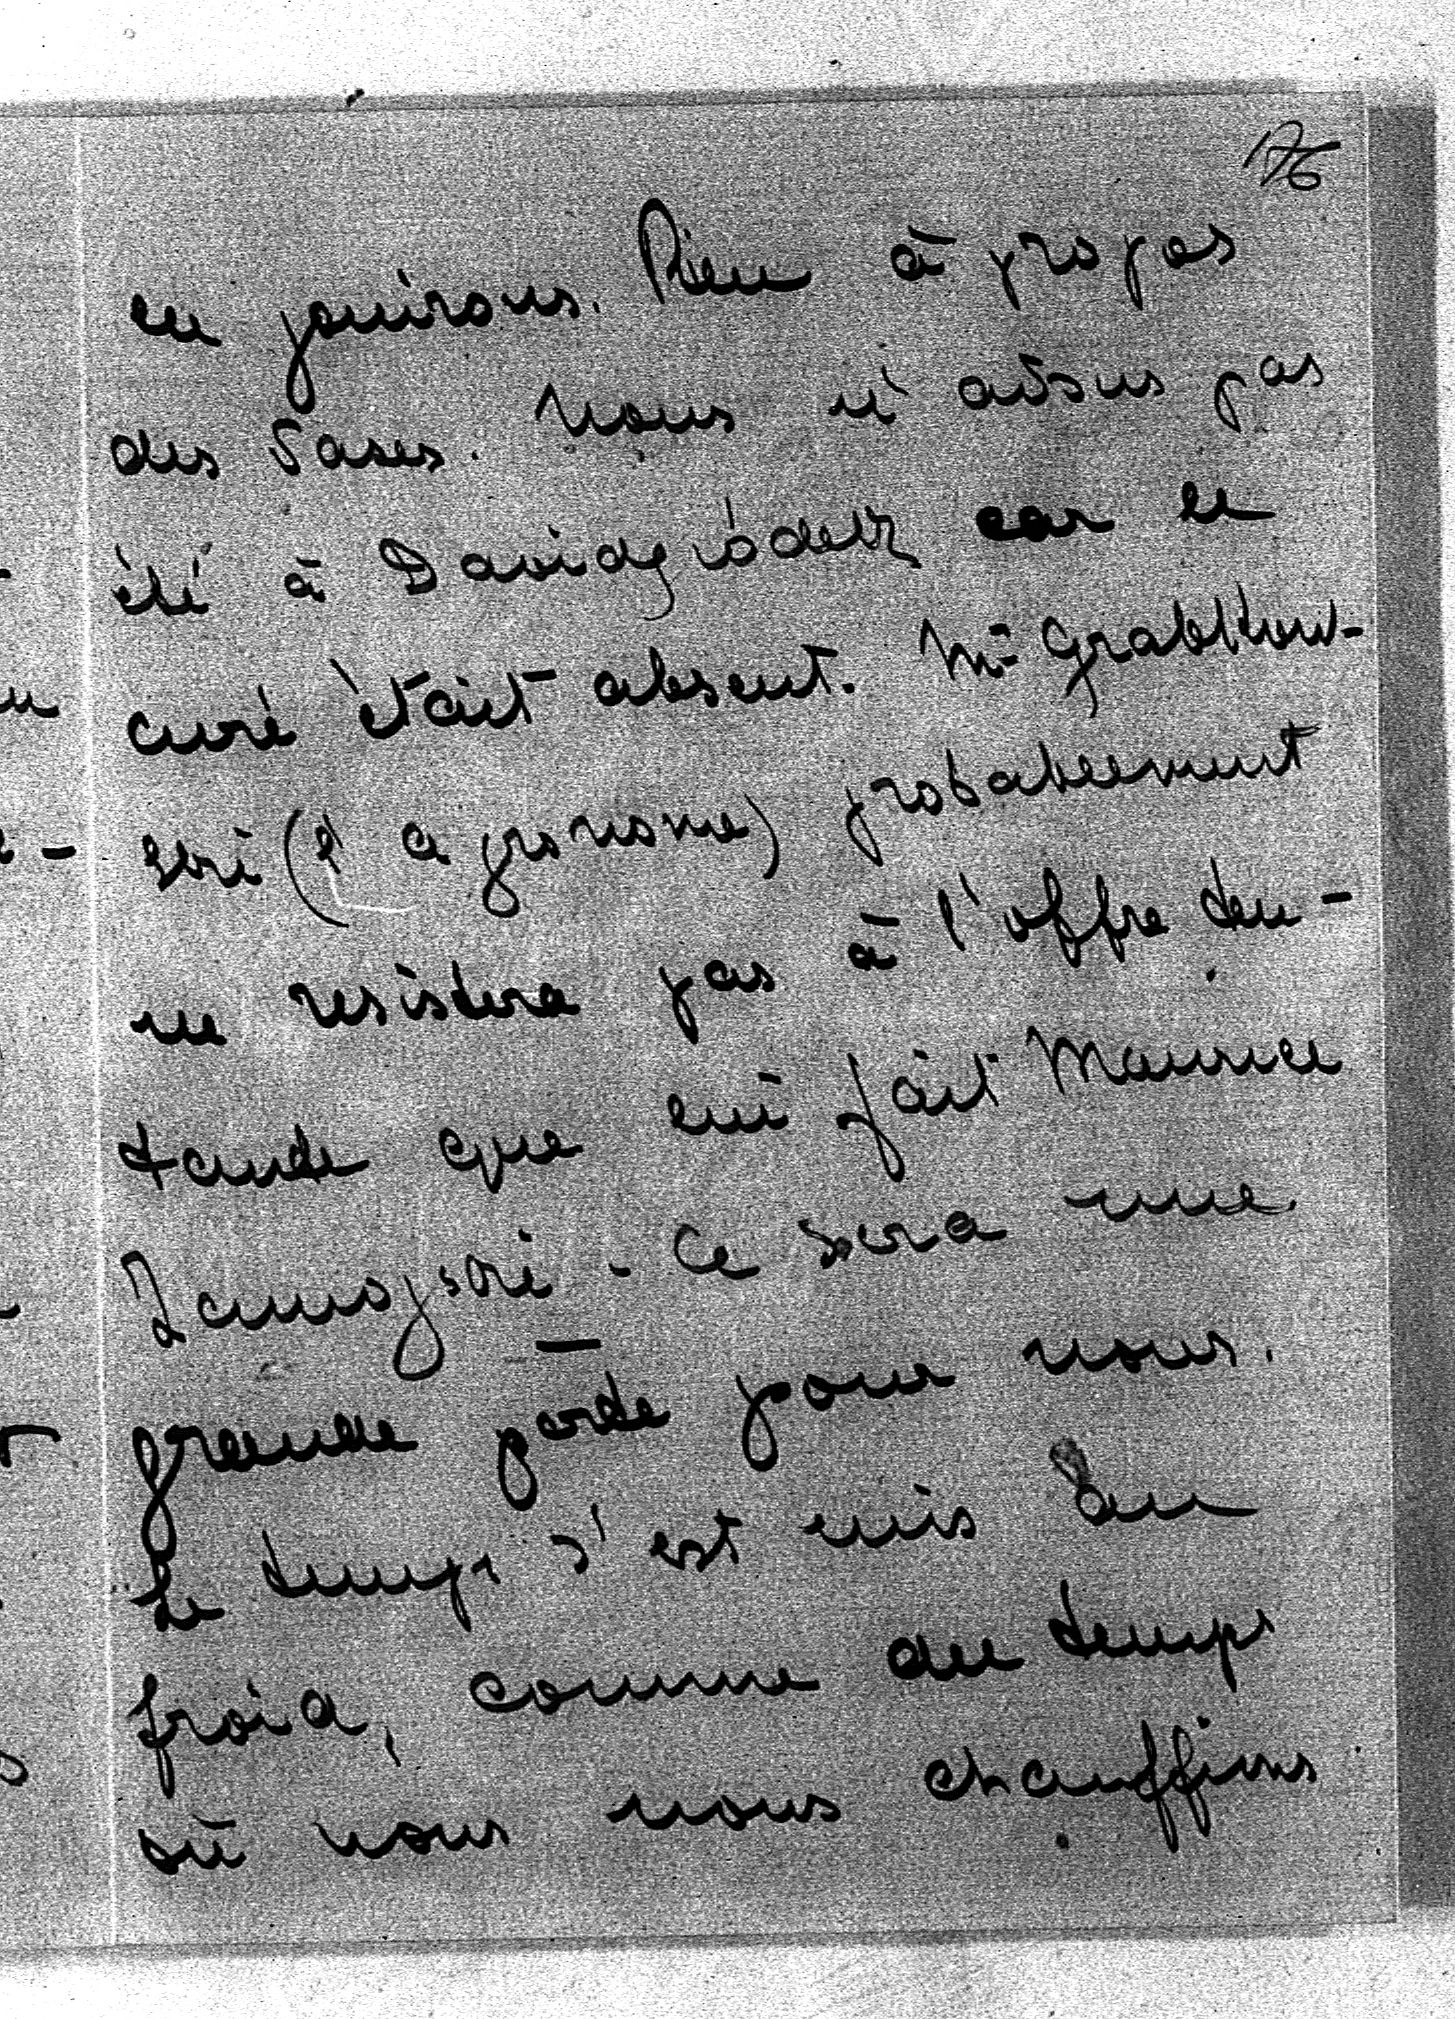 176
en jouirons. Rien à propos
des vases. Nous n'avons pas
été à Davidgródek car le
curé était absent. Mr
ski (l'agronome) probablement
ne resistera pas à l'offre ten-
tante que lui fait Maurice
Zamoyski. Ce sera une
grande perte pour nous.
Le temps s'est mis au
froid, comme du temps
où nous nous chauffions